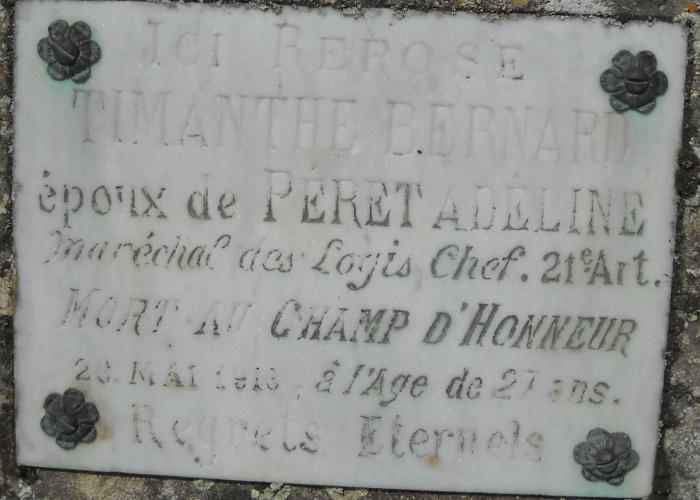 Ici Repose
TIMANTHE BERNARD
époux de PÉRET ADELINE
Maréchal des Logis Chef. 21e Art.
MORT AU CHAMP D'HONNEUR
MAI à l'Age de 27 ans.
Regrets Eternels